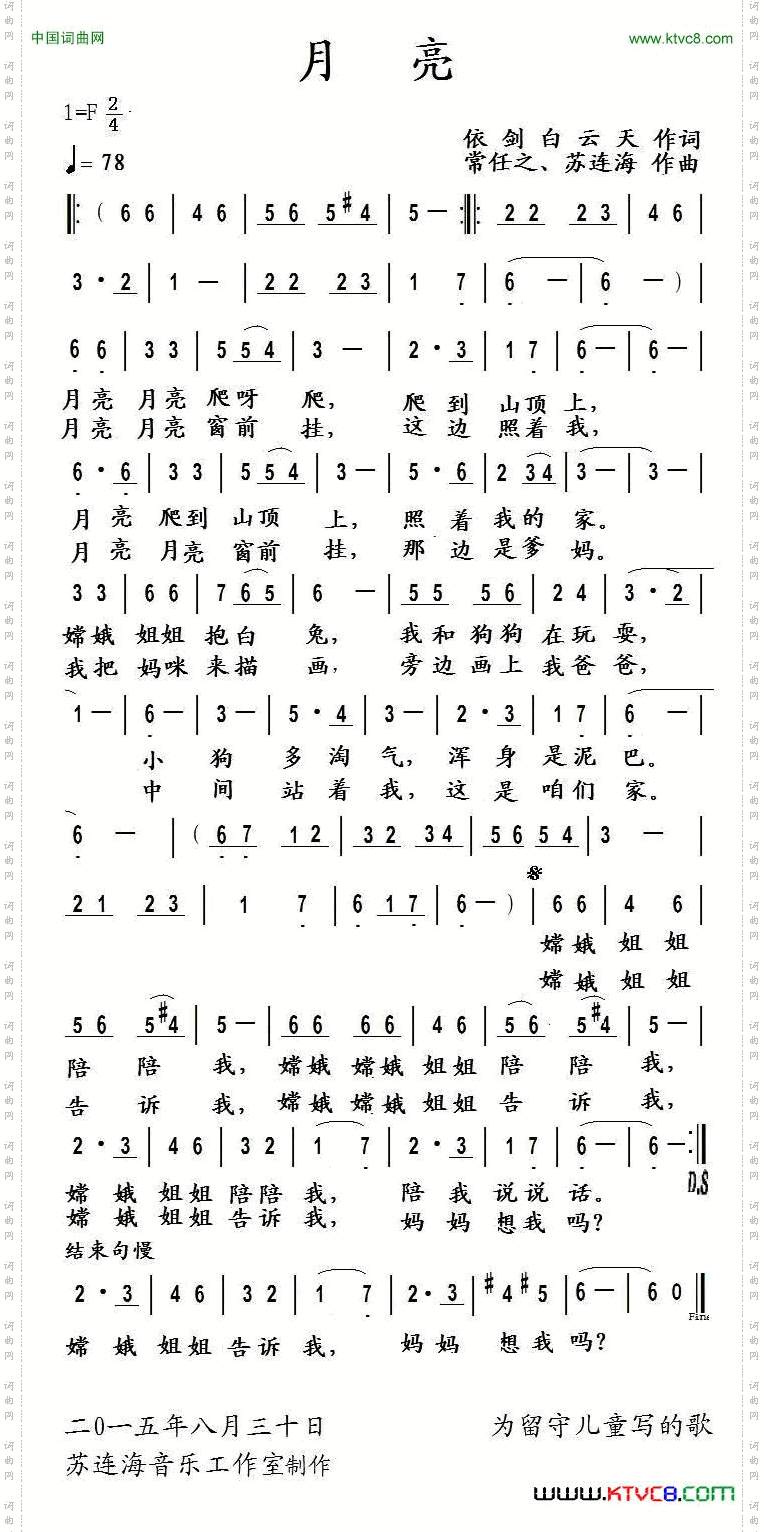 中国词曲网
www.ktvc8.com
月 亮
1=F 2/4
♩= 78
依剑白云天 作词
常任之、苏连海 作曲
‖: ( 6 6 | 4 6 | 5 6 5 #4 | 5 — :‖: 2 2 2 3 | 4 6 |
3 · 2 | 1 — | 2 2 2 3 | 1 7 | 6 — | 6 — ) |
6 6 | 3 3 | 5 5 4 | 3 — | 2 · 3 | 1 7 | 6 — | 6 — |
月亮 月亮 爬呀 爬， 爬到 山顶上，
月亮 月亮 窗前 挂， 这边 照着我，
6 · 6 | 3 3 | 5 5 4 | 3 — | 5 · 6 | 2 3 4 | 3 — | 3 — |
月亮 爬到 山顶 上， 照着我的家。
月亮 月亮 窗前 挂， 那边是爹妈。
3 3 | 6 6 | 7 6 5 | 6 — | 5 5 5 6 | 2 4 | 3 · 2 |
嫦娥 姐姐 抱白 兔， 我和狗狗 在玩 耍，
我把 妈咪 来描 画， 旁边画上 我爸爸，
1 — | 6 — | 3 — | 5 · 4 | 3 — | 2 · 3 | 1 7 | 6 — |
小 狗 多淘气， 浑身 是泥巴。
中 间 站着我， 这是 咱们家。
6 — | ( 6 7 1 2 | 3 2 3 4 | 5 6 5 4 | 3 — |
2 1 2 3 | 1 7 | 6 1 7 | 6 — ) | 6 6 | 4 6 |
嫦娥 姐姐
嫦娥 姐姐
5 6 5 #4 | 5 — | 6 6 6 6 | 4 6 | 5 6 5 #4 | 5 — |
陪 陪 我， 嫦娥 嫦娥 姐姐 陪 陪 我，
告 诉 我， 嫦娥 嫦娥 姐姐 告 诉 我，
2 · 3 | 4 6 | 3 2 | 1 7 | 2 · 3 | 1 7 | 6 — | 6 — :‖
D.S
嫦娥 姐姐 陪陪 我， 陪我 说说 话。
嫦娥 姐姐 告诉 我， 妈妈 想我 吗？
结束句慢
2 · 3 | 4 6 | 3 2 | 1 7 | 2 · 3 | #4 #5 | 6 — | 6 0 ‖
Fine
嫦娥 姐姐 告诉 我， 妈妈 想我 吗？
二0一五年八月三十日
为留守儿童写的歌
苏连海音乐工作室制作
www.KTVC8.COM
词曲网